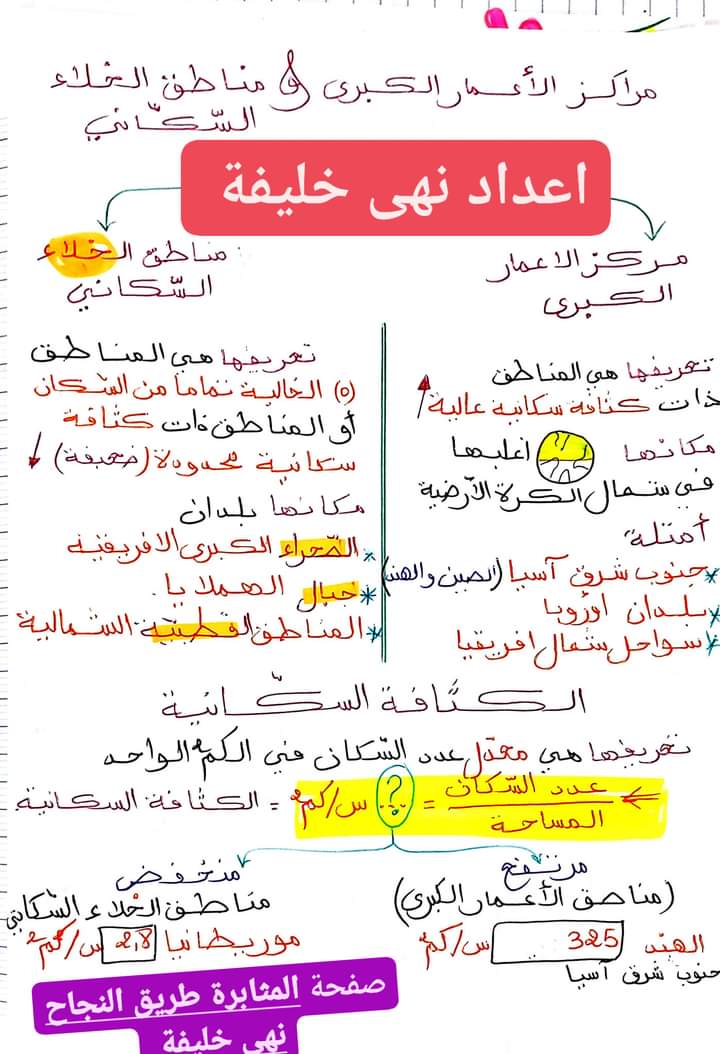 مراكز الأعمار الكبرى و مناطق الخلاء
السّكّاني
اعداد نهى خليفة
مركز الاعمار
الكبرى
تعريفها هي المناطق
ذات كثافة سكانية عالية
مكانها اغلبها
في شمال الكرة الأرضية
أمثلة
* جنوب شرق آسيا (الصين والهند)
* بلدان اوروبا
* سواحل شمال افريقيا
مناطق الخلاء
السّكاني
تعريفها هي المناطق
(0) الخالية تماما من السّكان
أو المناطق ذات كثافة
سكانية محدودة (ضعيفة)
مكانها بلدان
* الصّحراء الكبرى الافريقية
* جبال الهملايا.
* المناطق القطبية الشمالية
الكثّافة السكّانية
تعريفها هي معدّل عدد السّكان في الكم² الواحد
عدد السّكان
المساحة
= ? س/كم² = الكثافة السكانية
مرتفع
(مناطق الأعمار الكبرى)
الهند 325 س/كم²
جنوب شرق آسيا
منخفض
مناطق الخلاء السّكاني
موريطانيا 2,8 س/كم²
صفحة المثابرة طريق النجاح
نهى خليفة